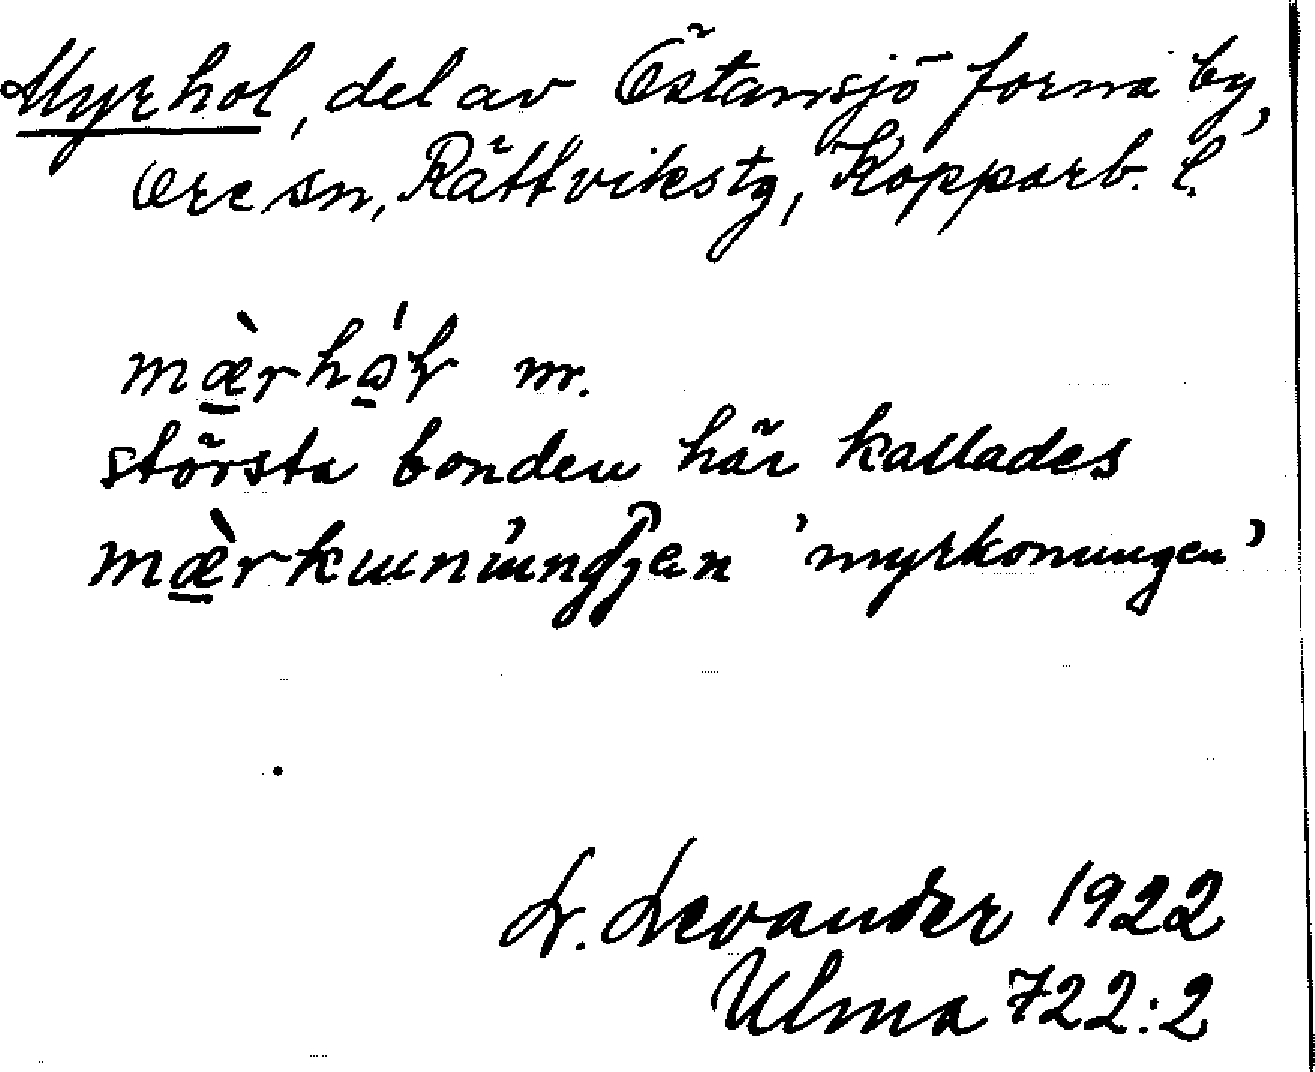 Myrhol, del av Östansjö forna by,
Ore sn, Rättvikstg, Kopparb. l.
mæ̀rhó̠ɫ m.
största bonden här kallades
'myrkonungen'
L. Levander 1922
Ulma 722:2